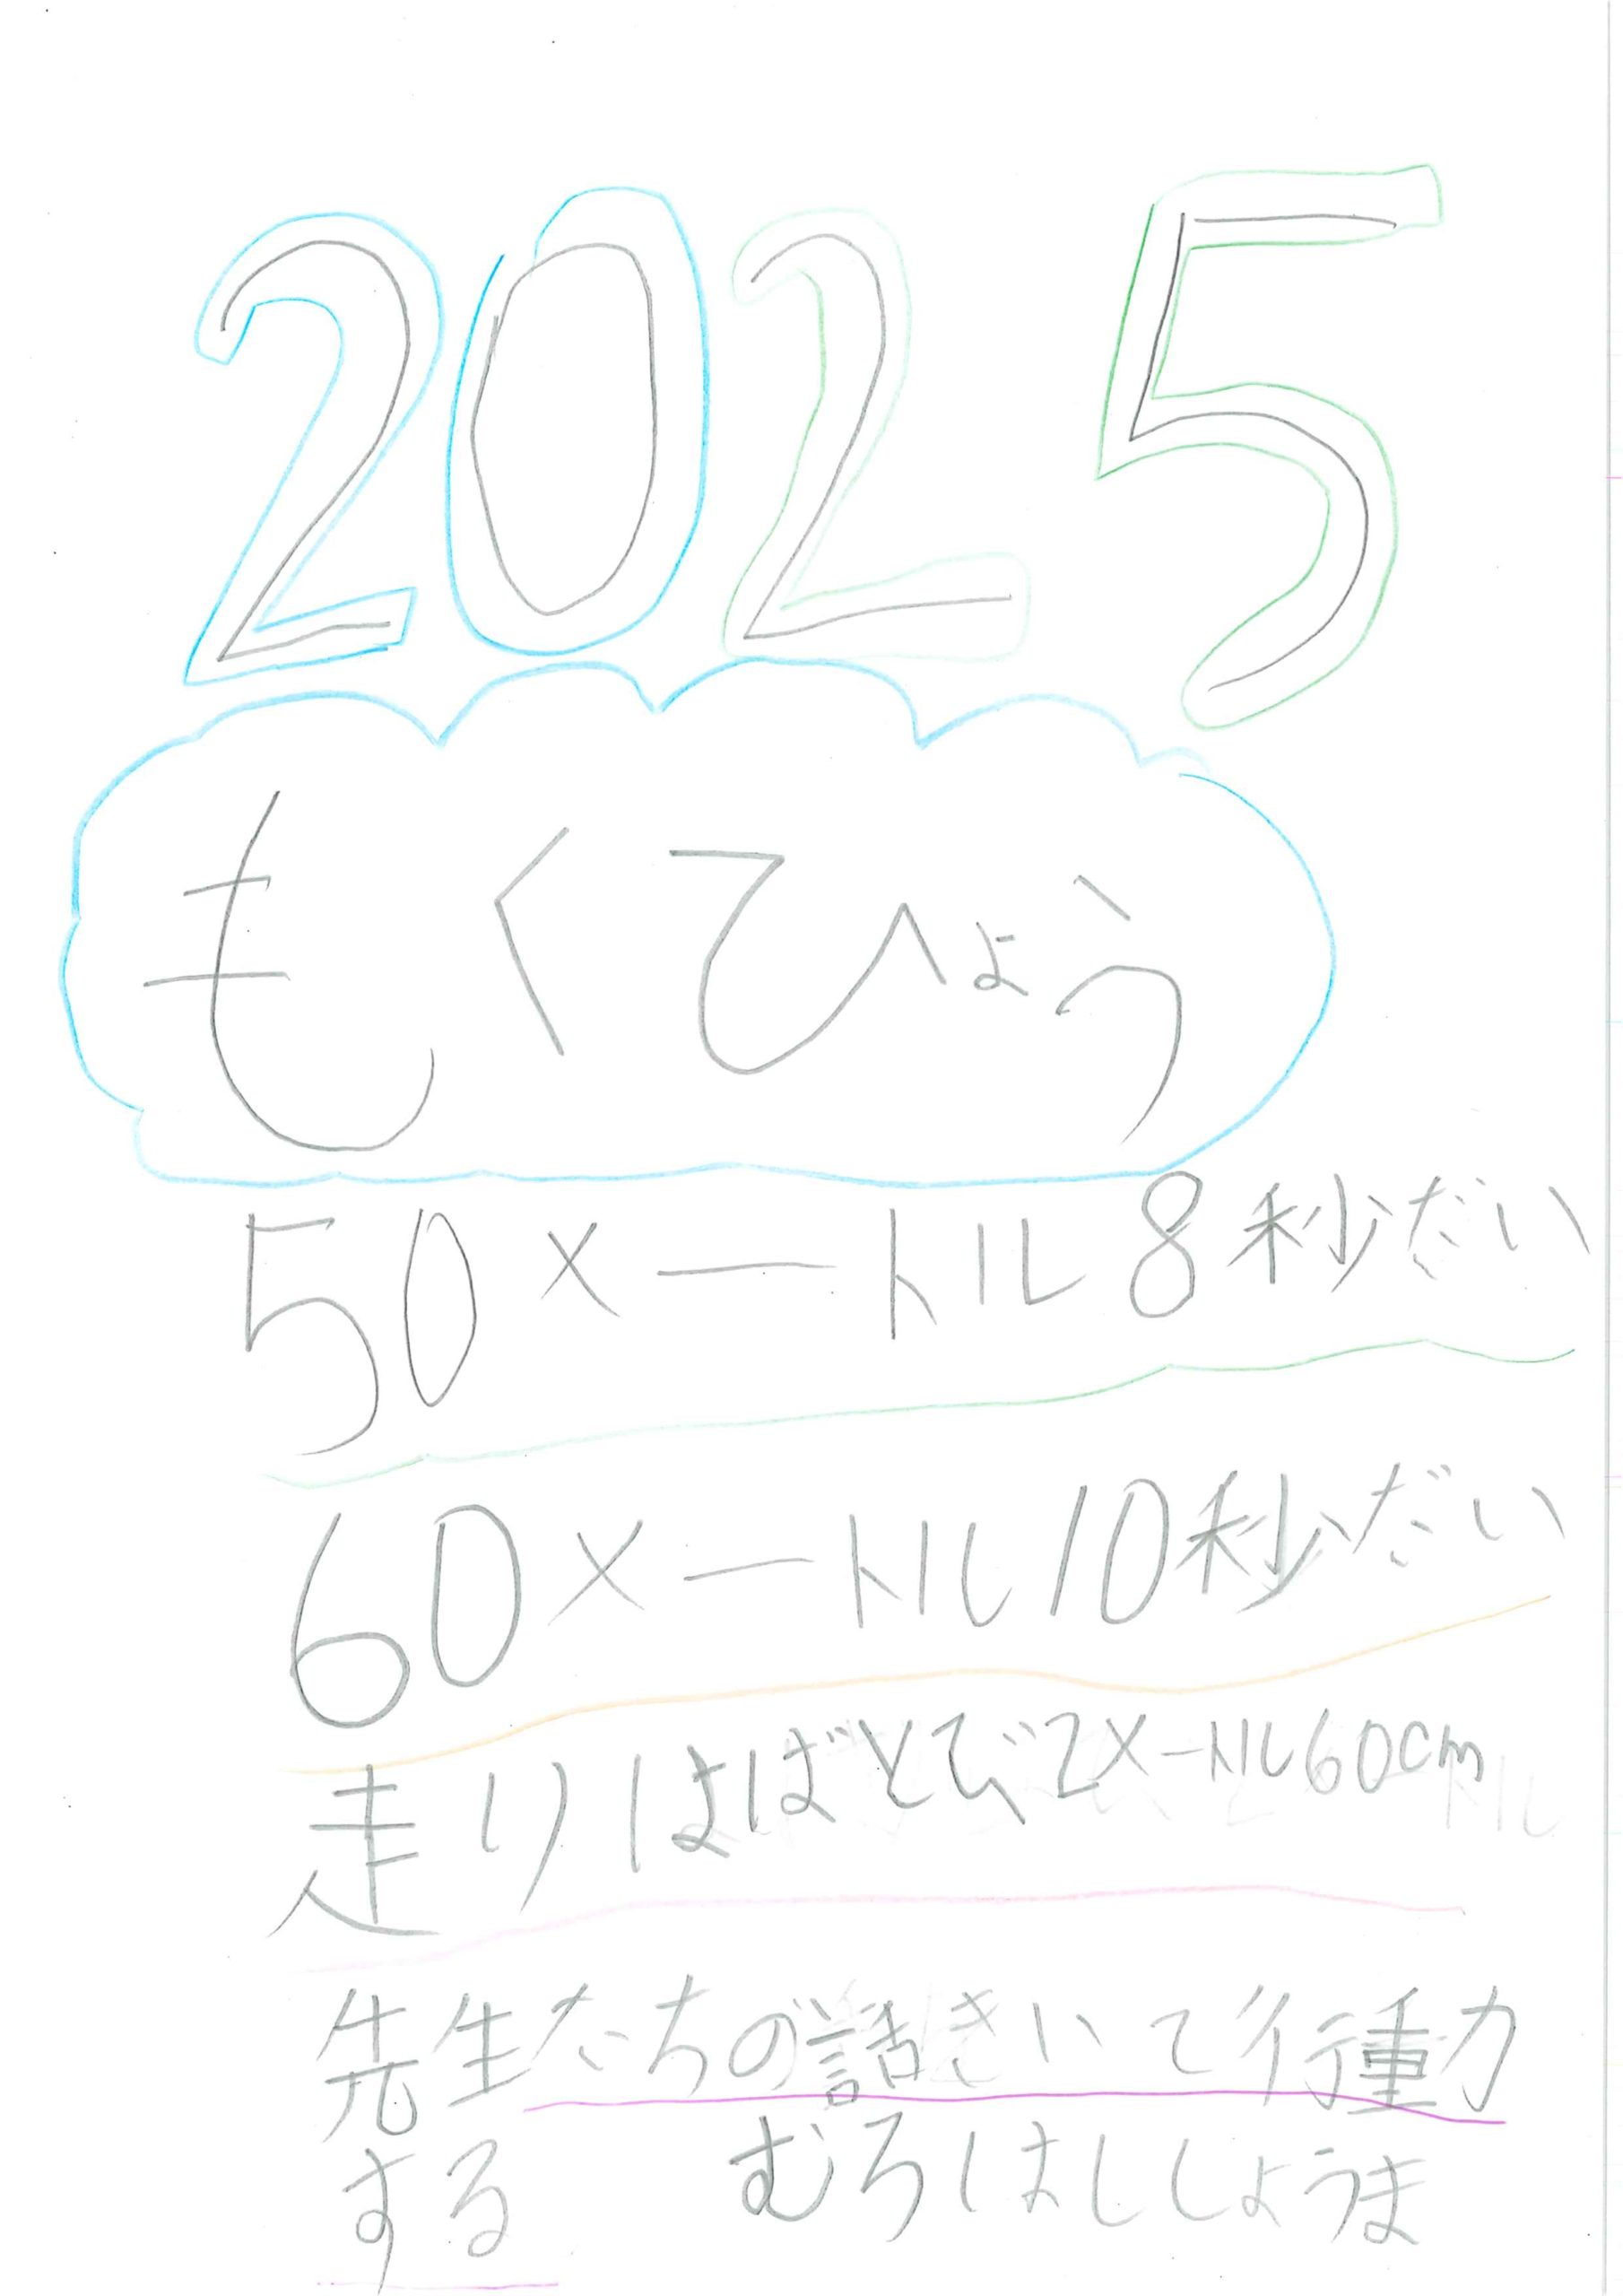 2025
もくひょう
50メートル8秒だい
60メートル10秒だい
走りはばとび2メートル60cm
先生たちの話きいて行動
する むろはししょうま